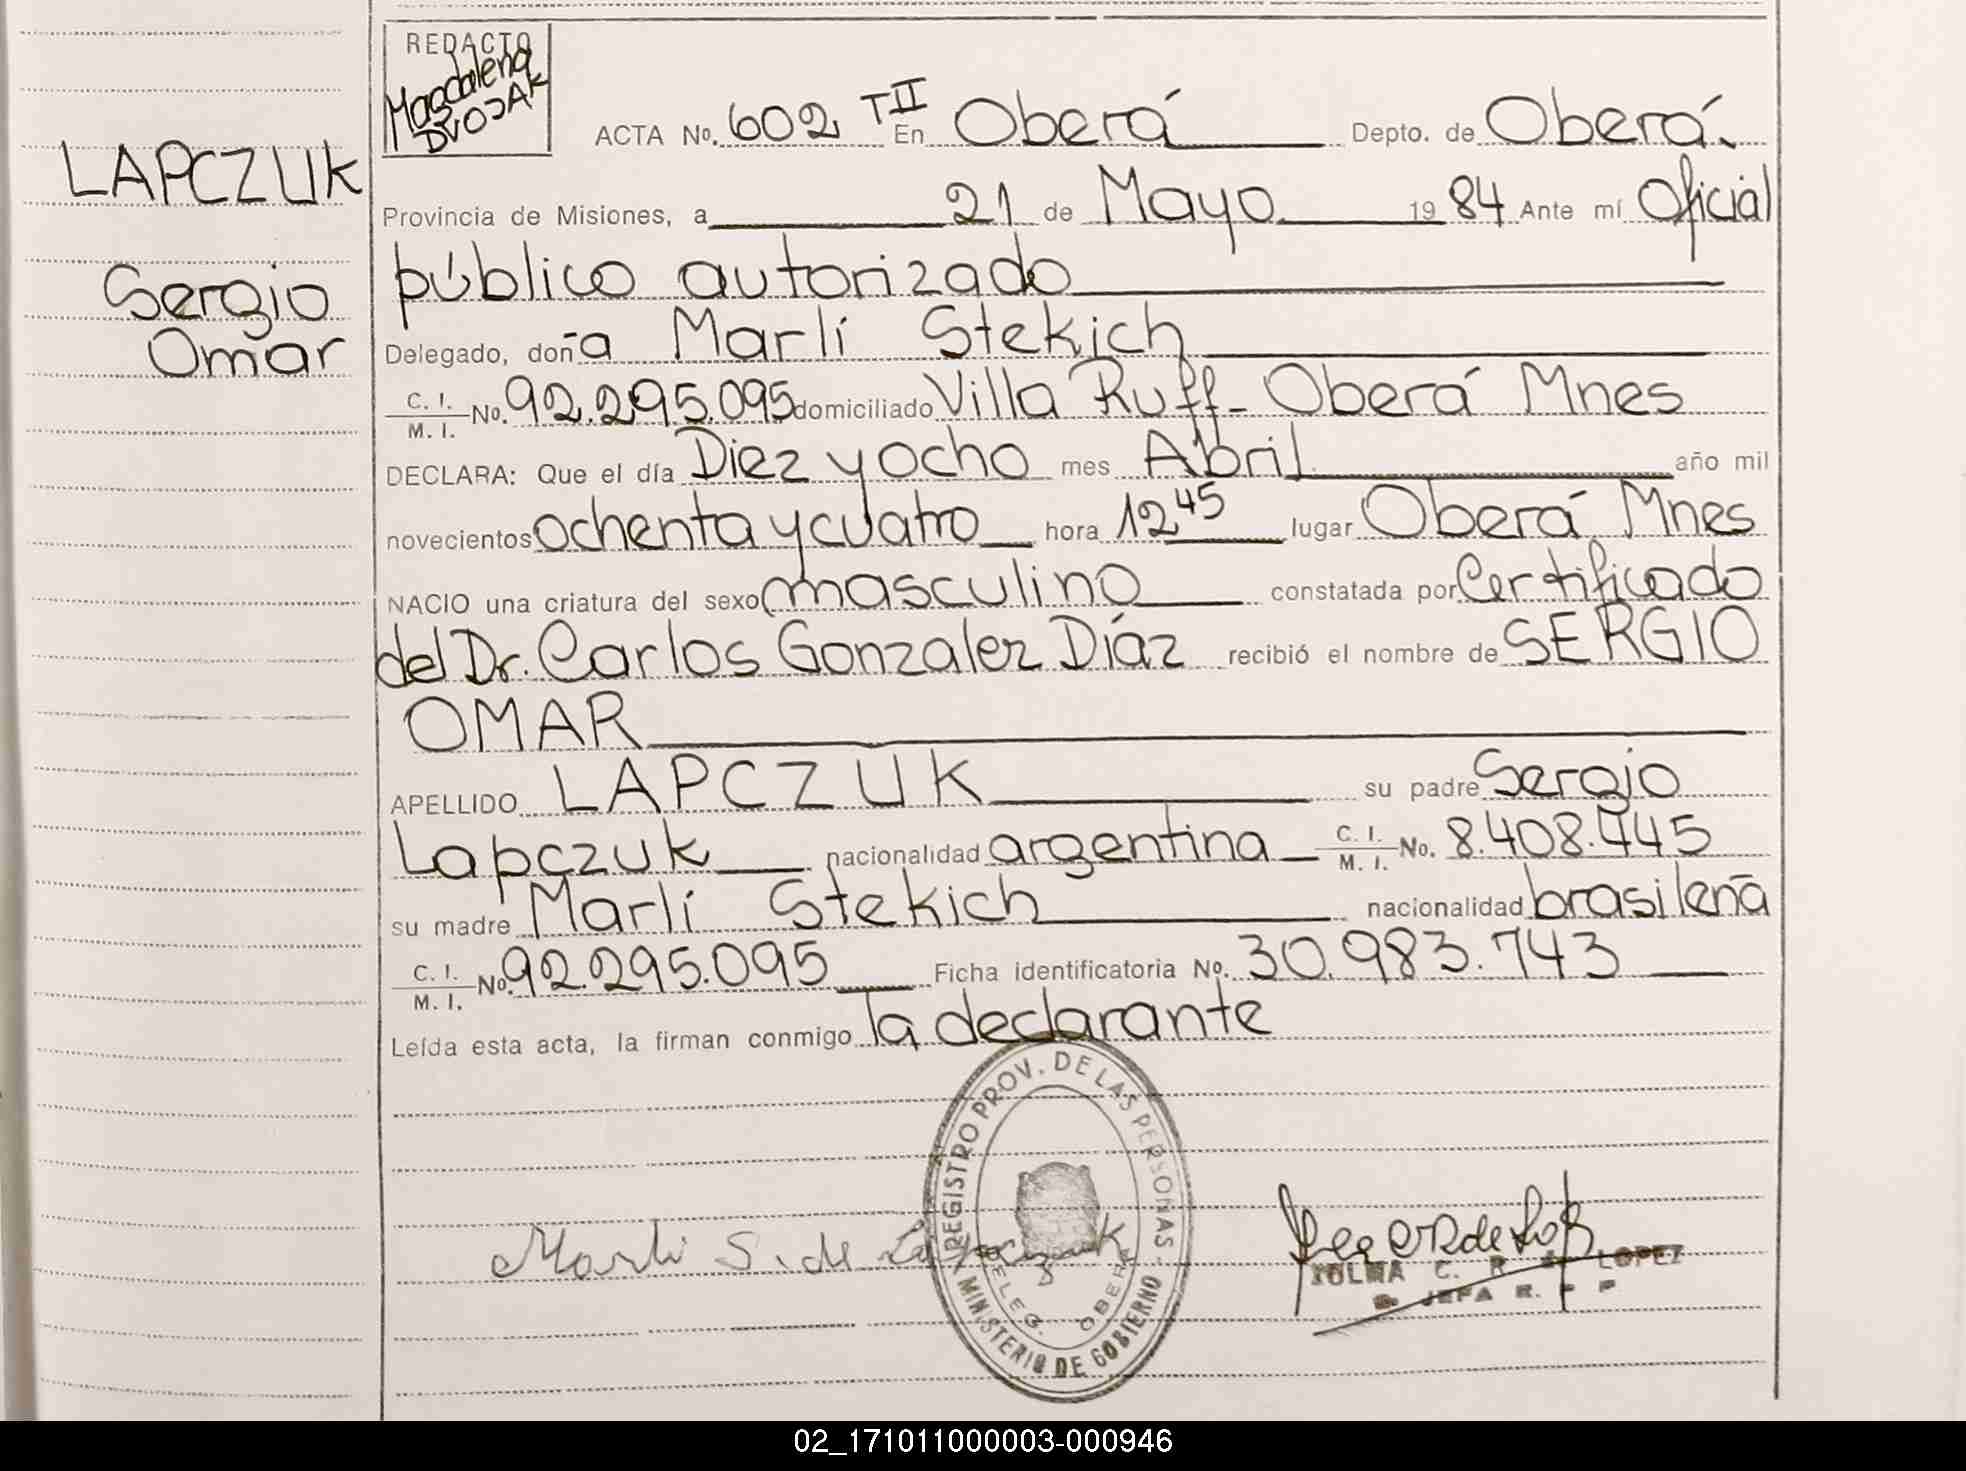 REDACTO
Magdalena
DVOJAK
LAPCZUK
Sergio
Omar
ACTA No. 602 TII En Oberá Depto. de Oberá
Provincia de Misiones, a 21 de Mayo 1984 Ante mí Oficial
público autorizado
Delegado, doña Marlí Stekich
C. I. / M. I. No. 92.295.095 domiciliado Villa Ruff - Oberá Mnes
DECLARA: Que el día Diez y ocho mes Abril año mil
novecientos ochenta y cuatro hora 12 45 lugar Oberá Mnes
NACIO una criatura del sexo masculino constatada por Certificado
del Dr. Carlos Gonzalez Díaz recibió el nombre de SERGIO
OMAR
APELLIDO LAPCZUK su padre Sergio
Lapczuk nacionalidad argentina C. I. / M. I. No. 8.408.445
su madre Marlí Stekich nacionalidad brasileña
C. I. / M. I. No. 92.295.095 Ficha identificatoria No. 30.983.743
Leída esta acta, la firman conmigo la declarante
REGISTRO PROV. DE LAS PERSONAS - MINISTERIO DE GOBIERNO
DELEG. OBERA
Marli S. de Lapczuk
C. R. LOPEZ
JEFA R.
02_171011000003-000946